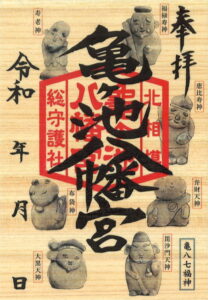 奉拝
亀ヶ池八幡宮
北相模
総守護社
令和 年 月 日
寿老神
福禄寿神
恵比寿神
弁財天神
布袋神
大黒天神
毘沙門天神
亀八七福神